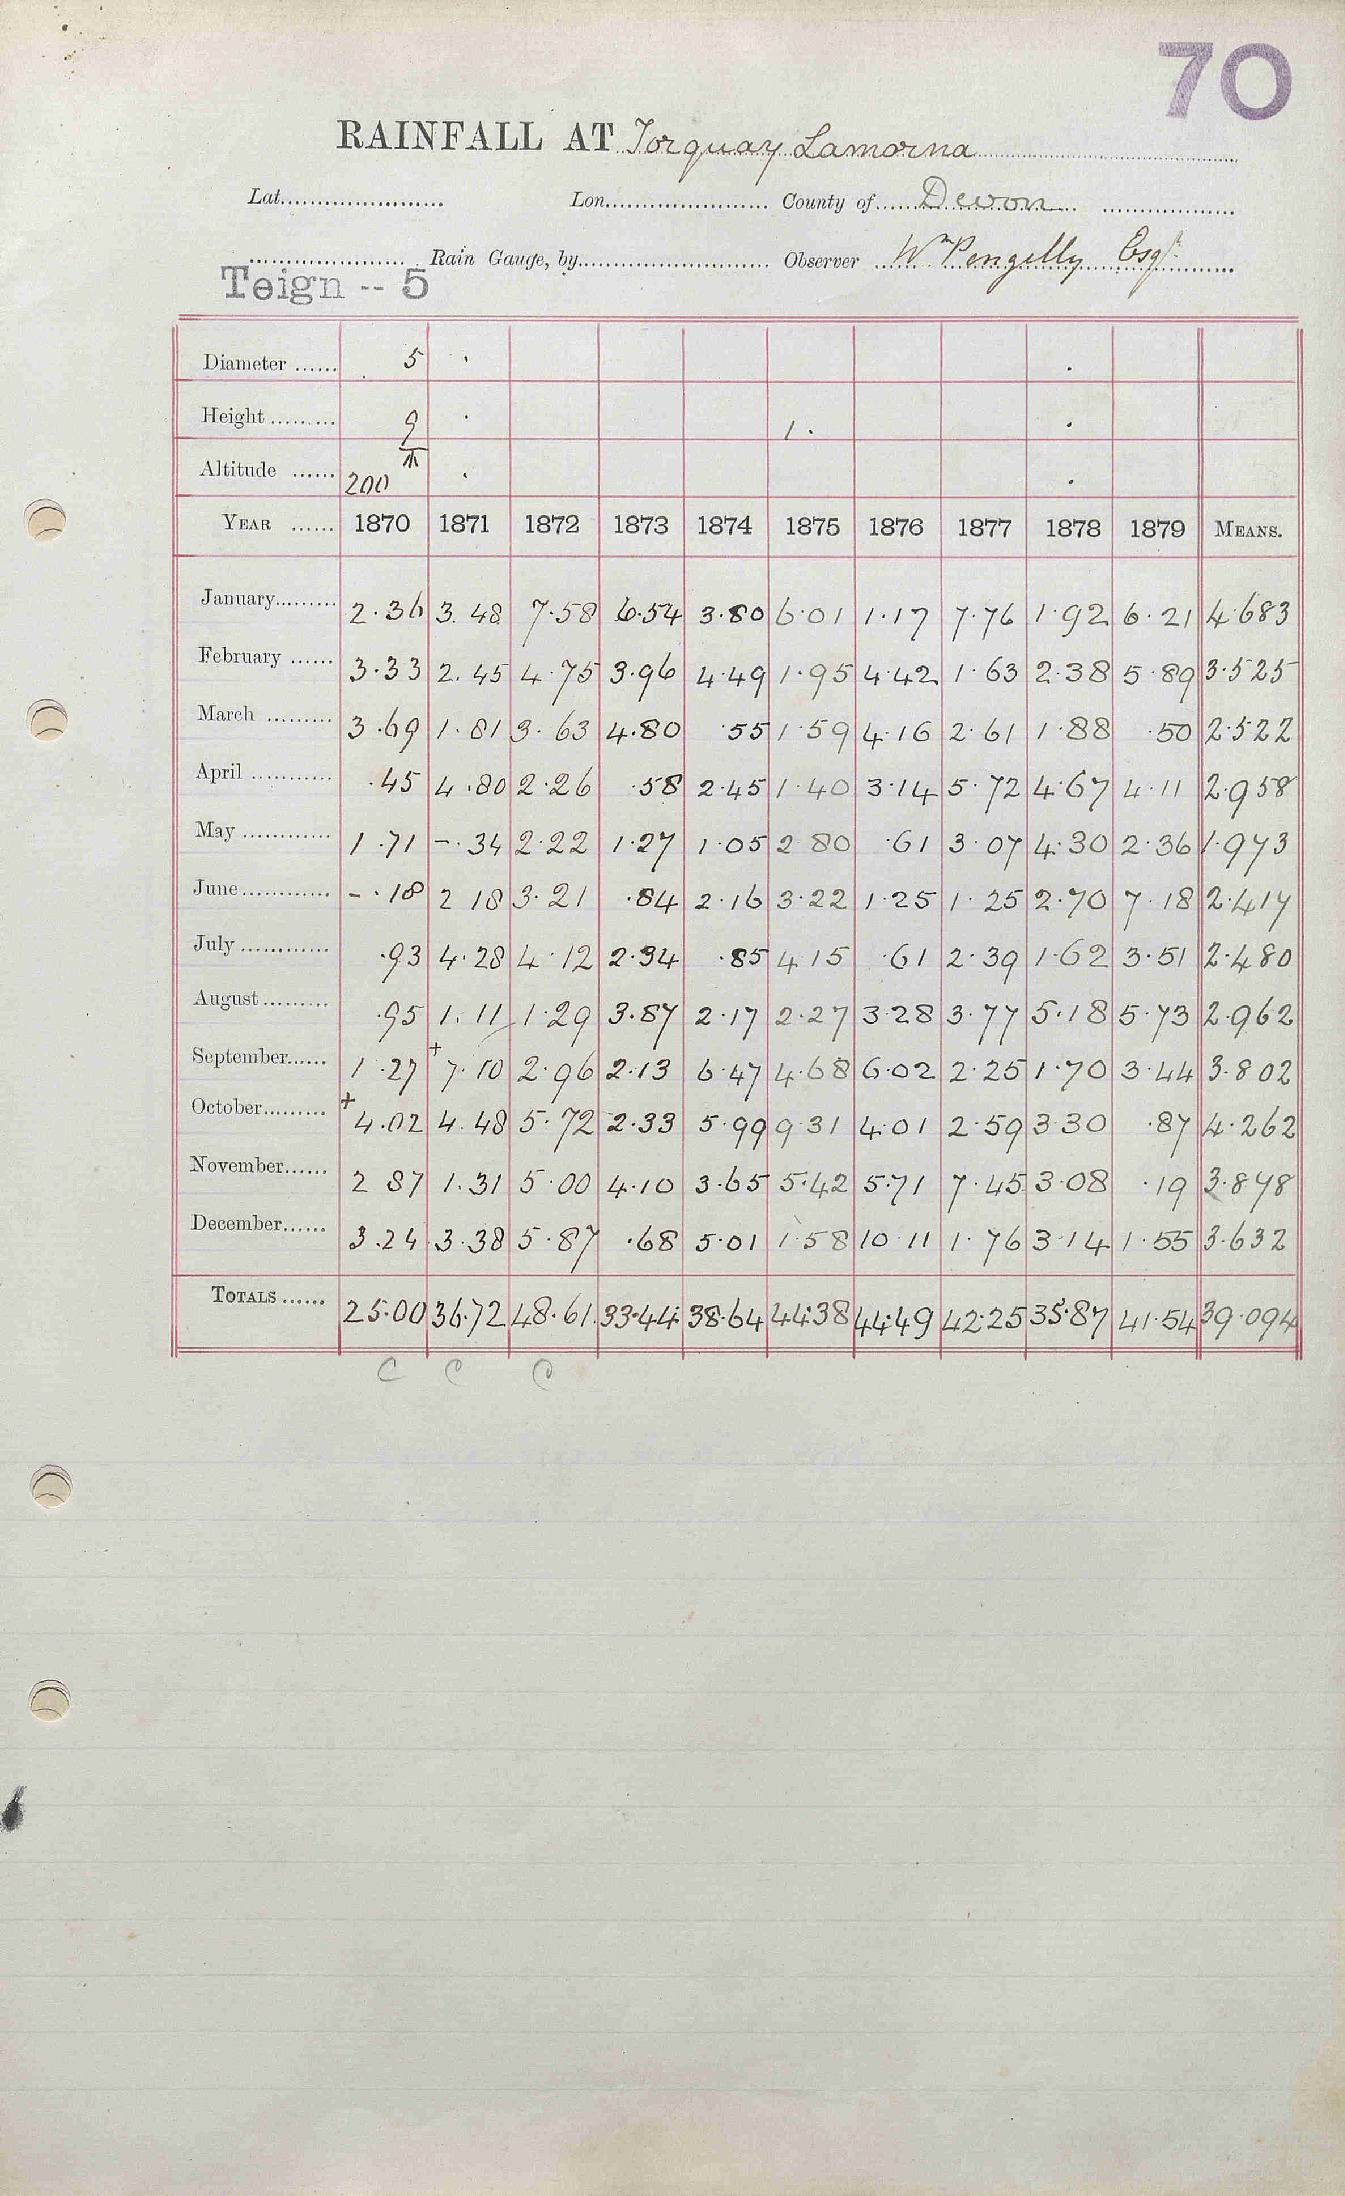 70
RAINFALL AT Torquay Lamorna
Lat. Lon. County of Devon
Rain Gauge, by Observer Wm Pengelly Esqr
Teign -- 5
Diameter 5
Height 9 1.
Altitude 200
YEAR 1870 1871 1872 1873 1874 1875 1876 1877 1878 1879 MEANS.
January 2.36 3.48 7.58 6.54 3.80 6.01 1.17 7.76 1.92 6.21 4.683
February 3.33 2.45 4.75 3.96 4.49 1.95 4.42 1.63 2.38 5.89 3.525
March 3.69 1.81 3.63 4.80 .55 1.59 4.16 2.61 1.88 .50 2.522
April .45 4.80 2.26 .58 2.45 1.40 3.14 5.72 4.67 4.11 2.958
May 1.71 -.34 2.22 1.27 1.05 2 80 .61 3.07 4.30 2.36 1.973
June -.18 2 18 3.21 .84 2.16 3.22 1.25 1.25 2.70 7.18 2.417
July .93 4.28 4.12 2.34 .85 4 15 .61 2.39 1.62 3.51 2.480
August .95 1.11 1.29 3.87 2.17 2.27 3.28 3.77 5.18 5.73 2.962
September 1.27 +7.10 2.96 2.13 6.47 4.68 6.02 2.25 1.70 3.44 3.802
October +4.02 4.48 5.72 2.33 5.99 9 31 4.01 2.59 3.30 .87 4.262
November 2 87 1.31 5.00 4.10 3.65 5.42 5.71 7.45 3.08 .19 3.878
December 3.24 3.38 5.87 .68 5.01 1.58 10 11 1.76 3.14 1.55 3.632
TOTALS 25.00 36.72 48.61 33.44 38.64 44.38 44.49 42.25 35.87 41.54 39.094
C C C